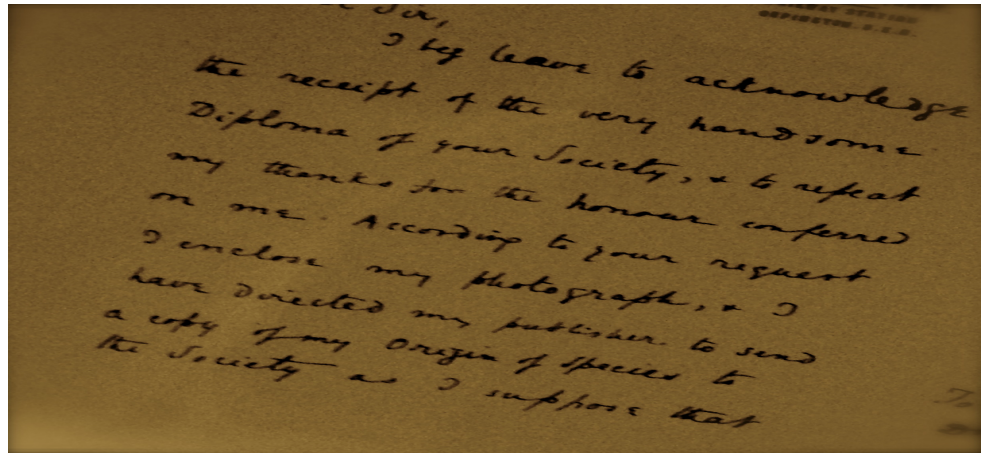 Sir,
RAILWAY STATION
ORPINGTON. S.E.R.
I beg leave to acknowledge
the receipt of the very handsome
Diploma of your Society, & to repeat
my thanks for the honour conferred
on me. According to your request
I enclose my photograph, & I
have directed my publisher to send
a copy of my Origin of Species to
the Society as I suppose that
To